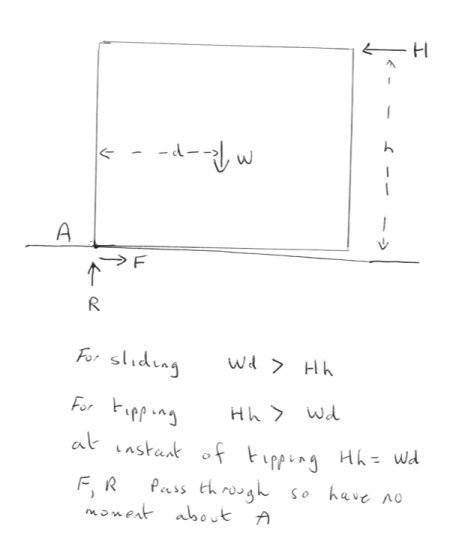 H
d
W
h
A
F
R
For sliding Wd > Hh
For tipping Hh > Wd
at instant of tipping Hh = Wd
F, R Pass through so have no
moment about A